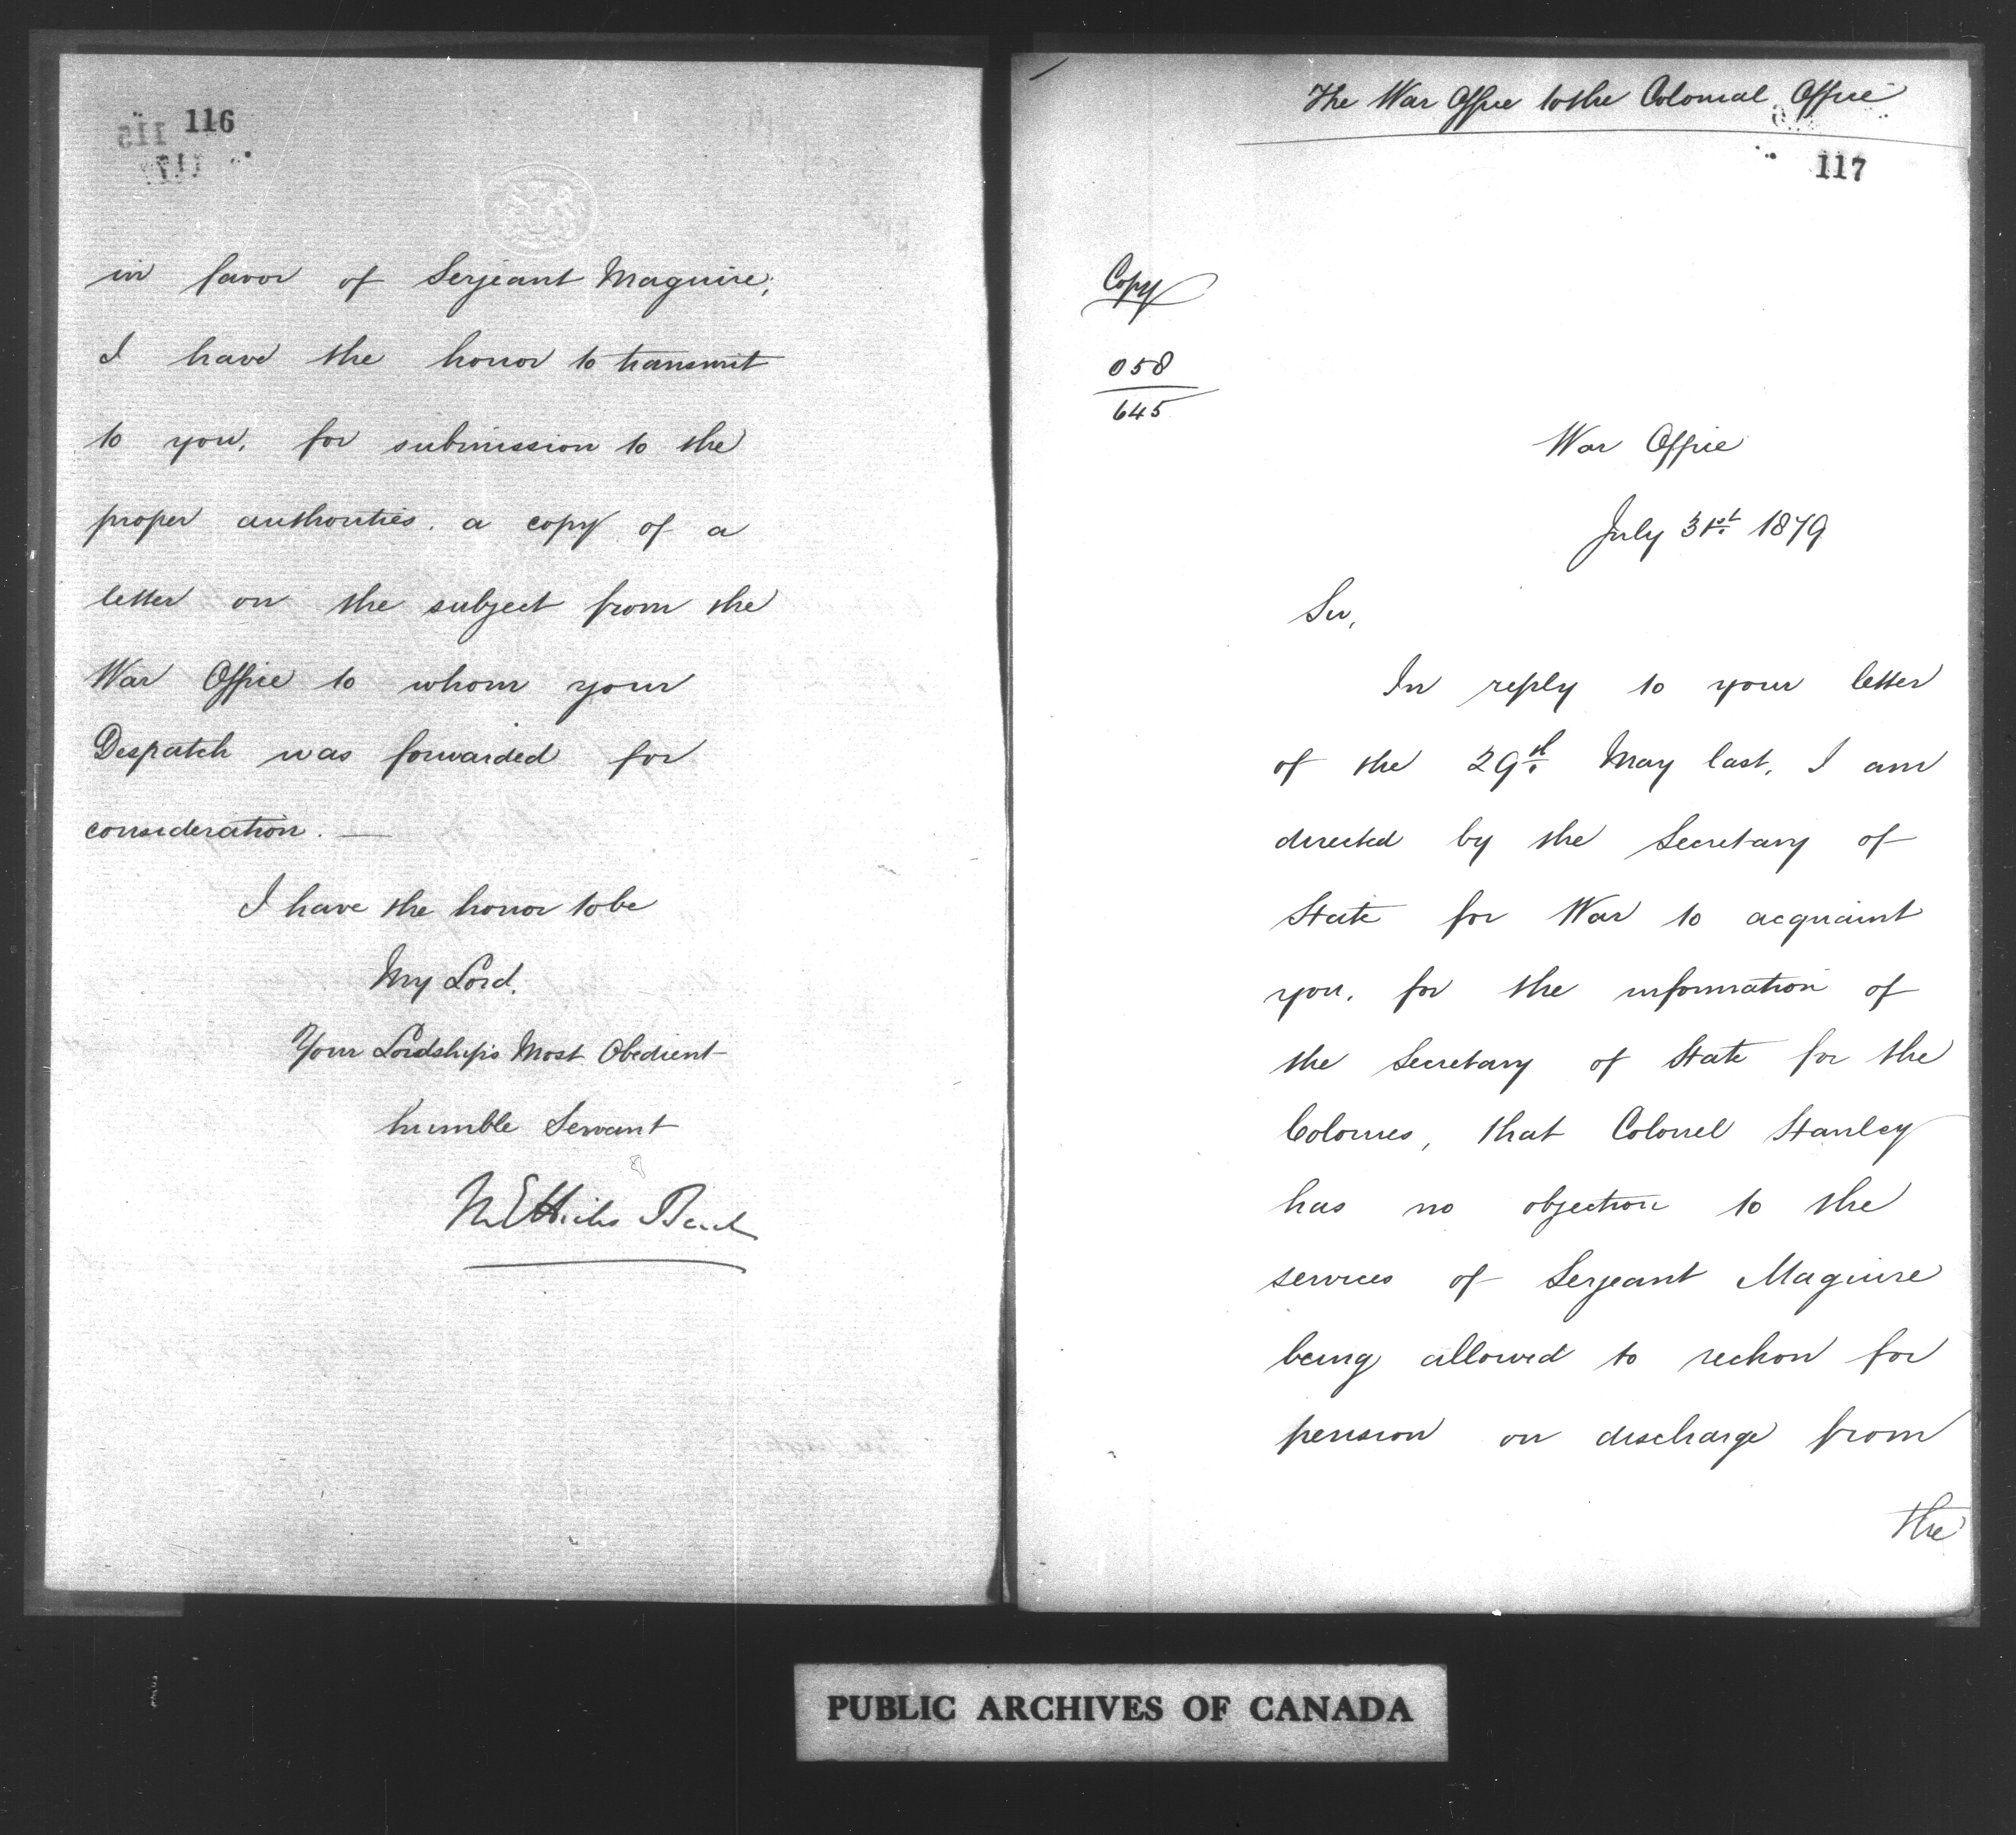 116
in favor of Serjeant Maguire,
I have the honor to transmit
to you, for submission to the
proper authorities, a copy of a
letter on the subject from the
War Office to whom your
Despatch was forwarded for
consideration. —
I have the honor to be
My Lord,
Your Lordship's Most Obedient
humble Servant
M E Hicks Beach
The War Office to the Colonial Office
117
Copy
058
645
War Office
July 31st 1879
Sir,
In reply to your letter
of the 29th May last, I am
directed by the Secretary of
State for War to acquaint
you, for the information of
the Secretary of State for the
Colonies, that Colonel Stanley
has no objection to the
services of Serjeant Maguire
being allowed to reckon for
pension on discharge from
the
PUBLIC ARCHIVES OF CANADA